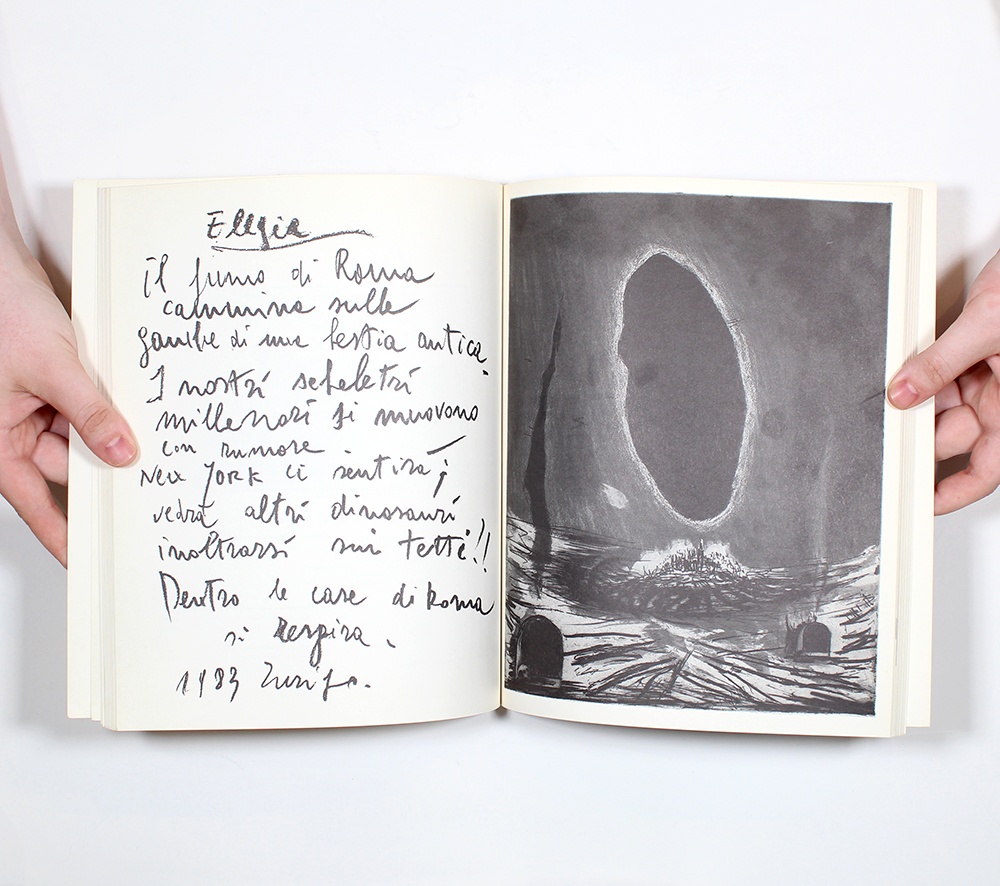 Elegia
il fumo di Roma
cammina sulle
gambe di una bestia antica.
I nostri scheletri
millenari si muovono
con rumore
New York ci sentirà,
vedrà altri dinosauri
inoltrarsi sui tetti!!
Dentro le case di Roma
si Respira.
1983 Zurigo.